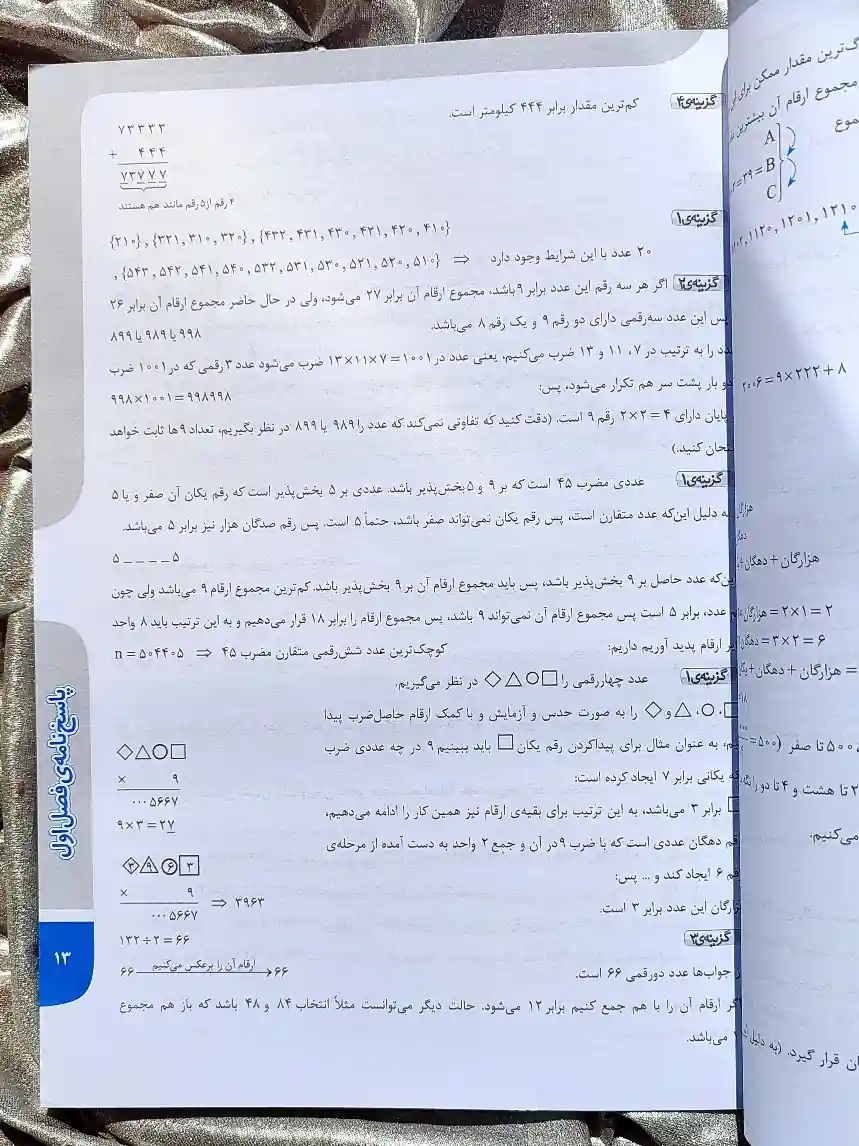 گزینه‌ی۴ کم‌ترین مقدار برابر ۴۴۴ کیلومتر است.
۷۳۳۳۳
+ ۴۴۴
۷۳۷۷۷
۴ رقم از ۵ رقم مانند هم هستند
گزینه‌ی۱
{۲۱۰} , {۳۲۱ , ۳۱۰ , ۳۲۰} , {۴۳۲ , ۴۳۱ , ۴۳۰ , ۴۲۱ , ۴۲۰ , ۴۱۰}
, {۵۴۳ , ۵۴۲ , ۵۴۱ , ۵۴۰ , ۵۳۲ , ۵۳۱ , ۵۳۰ , ۵۲۱ , ۵۲۰ , ۵۱۰} ⇒ ۲۰ عدد با این شرایط وجود دارد
گزینه‌ی۲ اگر هر سه رقم این عدد برابر ۹ باشد، مجموع ارقام آن برابر ۲۷ می‌شود، ولی در حال حاضر مجموع ارقام آن برابر ۲۶
پس این عدد سه‌رقمی دارای دو رقم ۹ و یک رقم ۸ می‌باشد. ۹۹۸ یا ۹۸۹ یا ۸۹۹
را به ترتیب در ۷، ۱۱ و ۱۳ ضرب می‌کنیم، یعنی عدد در ۱۰۰۱ = ۷×۱۱×۱۳ ضرب می‌شود عدد ۳ رقمی که در ۱۰۰۱ ضرب
دو بار پشت سر هم تکرار می‌شود، پس: ۹۹۸×۱۰۰۱ = ۹۹۸۹۹۸
پایان دارای ۴ = ۲×۲ رقم ۹ است. (دقت کنید که تفاوتی نمی‌کند که عدد را ۹۸۹ یا ۸۹۹ در نظر بگیریم، تعداد ۹ها ثابت خواهد
کنید.)
گزینه‌ی۱ عددی مضرب ۴۵ است که بر ۹ و ۵ بخش‌پذیر باشد. عددی بر ۵ بخش‌پذیر است که رقم یکان آن صفر و یا ۵
به دلیل این‌که عدد متقارن است، پس رقم یکان نمی‌تواند صفر باشد، حتماً ۵ است. پس رقم صدگان هزار نیز برابر ۵ می‌باشد.
۵ _ _ _ _ ۵
این‌که عدد حاصل بر ۹ بخش‌پذیر باشد، پس باید مجموع ارقام آن بر ۹ بخش‌پذیر باشد. کم‌ترین مجموع ارقام ۹ می‌باشد ولی چون
عدد، برابر ۵ است پس مجموع ارقام آن نمی‌تواند ۹ باشد، پس مجموع ارقام را برابر ۱۸ قرار می‌دهیم و به این ترتیب باید ۸ واحد
ارقام پدید آوریم داریم: کوچک‌ترین عدد شش‌رقمی متقارن مضرب ۴۵ ⇒ n = ۵۰۴۴۰۵
گزینه‌ی۱ عدد چهاررقمی را ◇△○□ در نظر می‌گیریم.
□، ○، △ و ◇ را به صورت حدس و آزمایش و با کمک ارقام حاصل‌ضرب پیدا
به عنوان مثال برای پیداکردن رقم یکان □ باید ببینیم ۹ در چه عددی ضرب
که یکانی برابر ۷ ایجاد کرده است:
□ برابر ۳ می‌باشد، به این ترتیب برای بقیه‌ی ارقام نیز همین کار را ادامه می‌دهیم،
دهگان عددی است که با ضرب ۹ در آن و جمع ۲ واحد به دست آمده از مرحله‌ی
۶ ایجاد کند و ... پس:
این عدد برابر ۳ است.
◇△○□
× ۹
...۵۶۶۷
۹×۳ = ۲۷
۳ ۹ ۶ ۳
× ۹
...۵۶۶۷
⇒ ۳۹۶۳
گزینه‌ی۳
۱۳۲ ÷ ۲ = ۶۶
جواب‌ها عدد دورقمی ۶۶ است. ۶۶ ارقام آن را برعکس می‌کنیم → ۶۶
اگر ارقام آن را با هم جمع کنیم برابر ۱۲ می‌شود. حالت دیگر می‌توانست مثلاً انتخاب ۸۴ و ۴۸ باشد که باز هم مجموع
می‌باشد.
پاسخ‌نامه‌ی فصل اول
۱۳
مقدار ممکن برای
مجموع ارقام آن
A
B
C
۱۱۲۰ , ۱۲۰۱ , ۱۲۱۰
۲۰۰۶ = ۹×۲۲۲+۸
هزارگان + دهگان
هزارگان = ۲×۱ = ۲
دهگان = ۳×۲ = ۶
= هزارگان + دهگان +
۵۰۰ تا صفر
۲ تا هشت و ۴ تا دو را
می‌کنیم.
قرار گیرد. (به دلیل